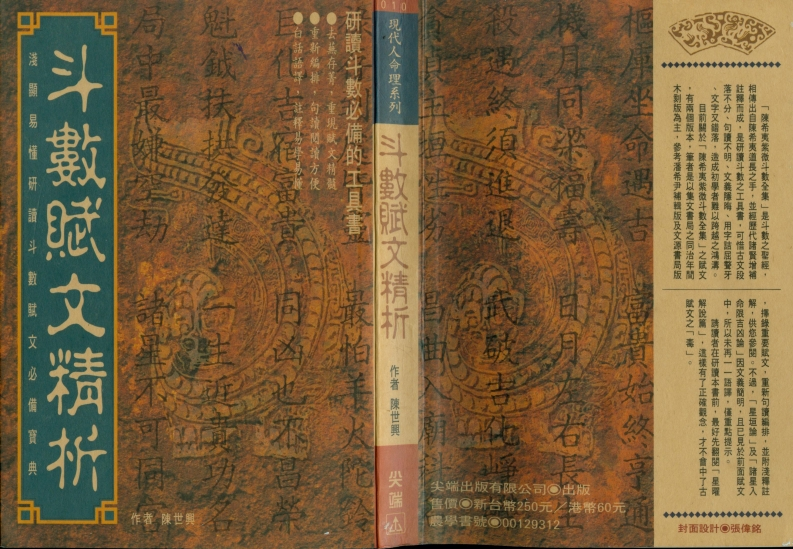 斗數賦文精析
淺顯易懂研讀斗數賦文必備寶典
作者 陳世興
研讀斗數必備的工具書
●去蕪存菁,重現賦文精髓
●重新編排,句讀閱讀方便
●白話語譯,註釋易學易懂
010
現代人命理系列
斗數賦文精析
作者 陳世興
尖端
樞庫坐命遇吉 富貴始終亨通
機月同梁福壽 日月
殺遇終須進退 武破吉化崢
昌曲入廟
最怕羊火陀鈴
同凶也
魁鉞扶
局中最嫌
諸星不可同
尖端出版有限公司◉出版
售價◉新台幣250元/港幣60元
農學書號◉00129312
「陳希夷紫微斗數全集」是斗數之聖經,
相傳出自陳希夷道長之手,並經歷代諸賢增補
註釋而成,是研讀斗數之工具書,可惜古文段
落不分、句讀不明、文義隱晦、用字詰屈聱牙
、文字又錯落,造成初學者難以跨越之鴻溝。
目前關於「陳希夷紫微斗數全集」之賦文
,有兩個版本,筆者是以集文書局之同治年間
木刻版為主,參考潘希尹補輯版及文源書局版
,擇錄重要賦文,重新句讀編排,並附淺釋註
解,供您參閱。不過,「星垣論」及「諸星入
命限吉凶論」因文義簡明,且已見於前面賦文
中,所以未再一一語譯,僅重點提示。
誘讀者在研讀本書前,最好先翻閱「星曜
解說篇」,這樣有了正確觀念,才不會中了古
賦文之「毒」。
封面設計◉張偉銘